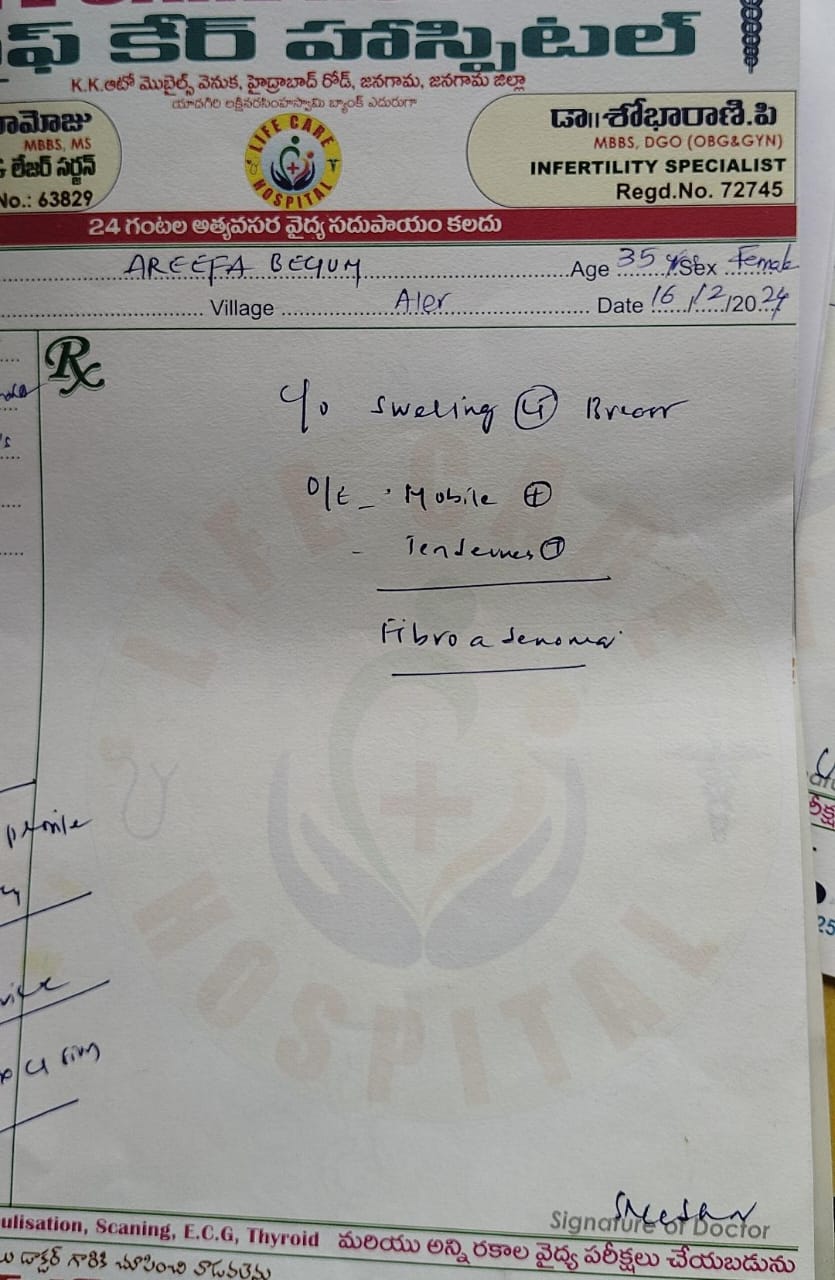 కేర్ హాస్పిటల్
K.K.ఆటో మొబైల్స్ వెనుక, హైద్రాబాద్ రోడ్, జనగామ, జనగామ జిల్లా
యాదగిరి లక్ష్మీనరసింహస్వామి బ్యాంక్ ఎదురుగా
MBBS, MS
& లేజర్ సర్జన్
No.: 63829
LIFE CARE
HOSPITAL
డా॥శోభారాణి.పి
MBBS, DGO (OBG&GYN)
INFERTILITY SPECIALIST
Regd.No. 72745
24 గంటల అత్యవసర వైద్య సదుపాయం కలదు
AREEFA BEGUM Age 35 Sex Female
Village Aler Date 16/12/2024
Rx
C/o Sweling Lt Breast
O/E - Mobile +
- Tendernes +
Fibroadenoma
profile
LIFE CARE
HOSPITAL
Signature of Doctor
ulisation, Scaning, E.C.G, Thyroid మరియు అన్ని రకాల వైద్య పరీక్షలు చేయబడును
డాక్టర్ గారికి చూపించి వాడవలెను
25